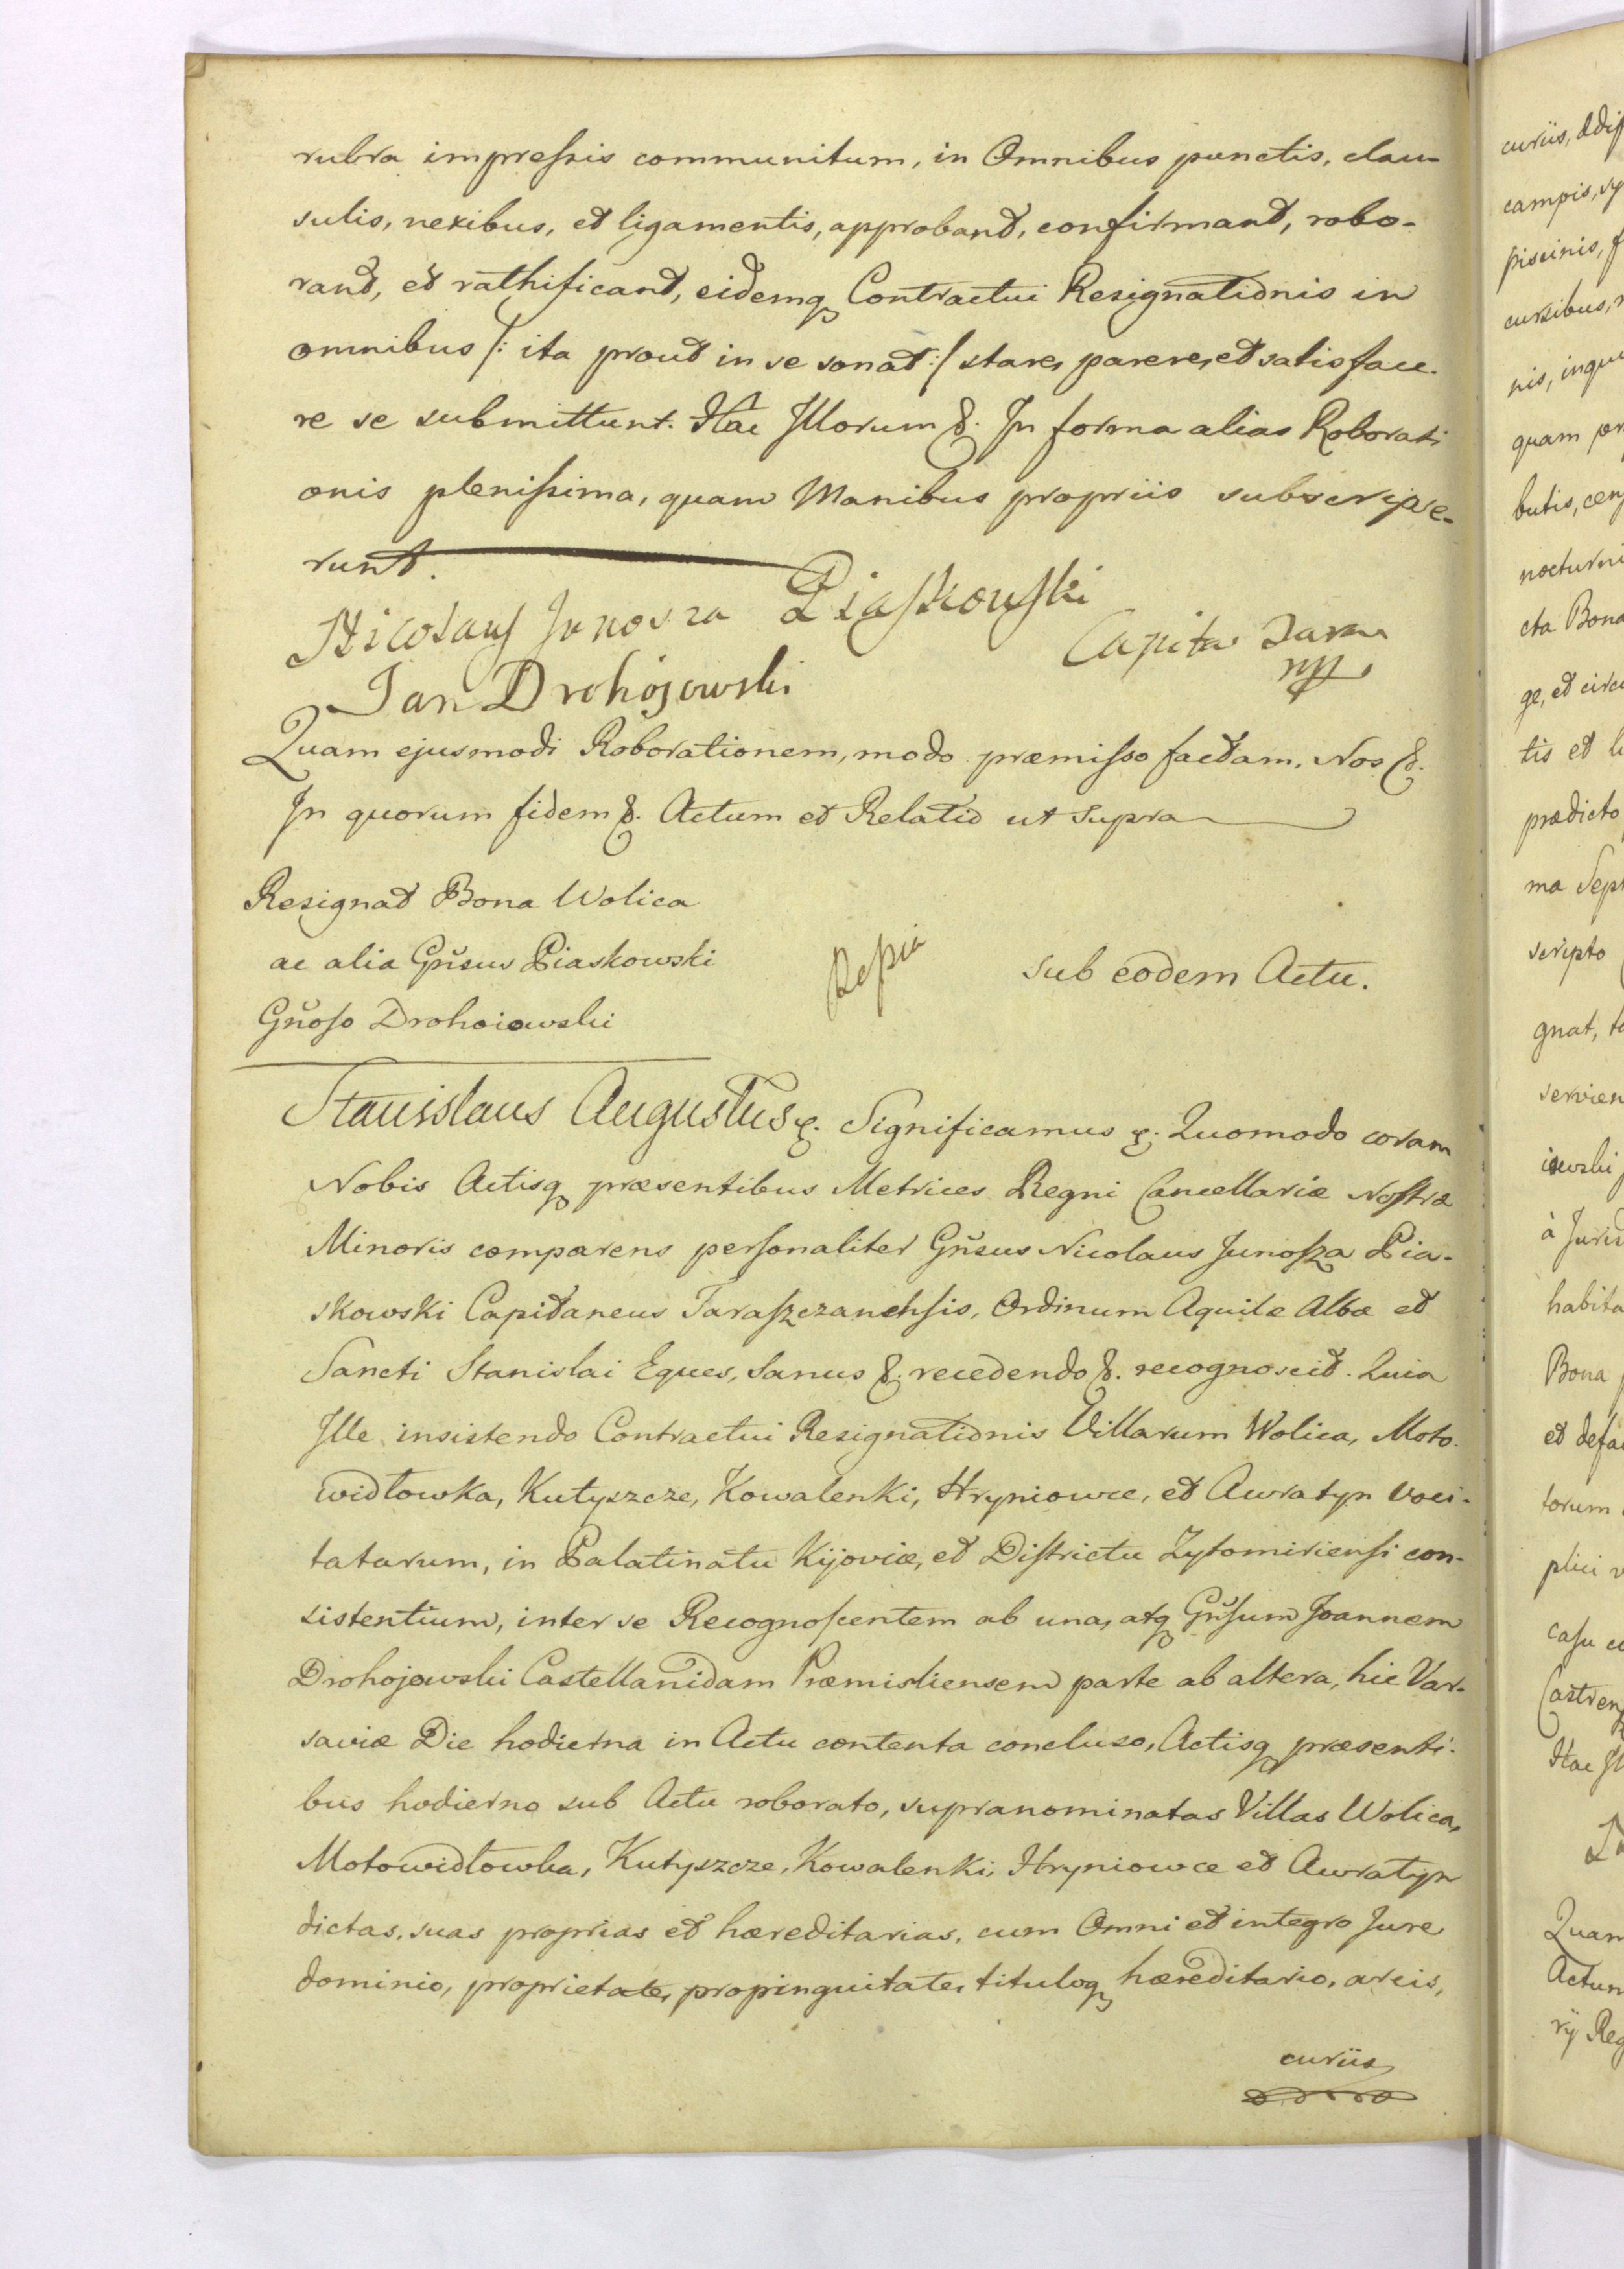 rubra impressis communitum, in Omnibus punctis, clau-
sulis, nexibus, et ligamentis, approbant, confirmant, robo-
rant, et rathificant, eidemq Contractui Resignationis in
omnibus /: ita prout in se sonat :/ stare, parere, et satisface-
re se submittunt. Hac Illorum &. In forma alias Roborati
onis plenissima, quam Manibus propriis subscripse-
runt.
Nicolaus Junosza Piaskowski
Capita Tara
mp
Jan Drohojowski
Quam ejusmodi Roborationem, modo præmisso factam, Nos &.
In quorum fidem &. Actum et Relatio ut Supra
Resignat Bona Wolica
ac alia Gnsus Piaskowski
Gnoso Drohoiowski
sub eodem Actu.
Stanislaus Augustus &. Significamus &. Quomodo coram
Nobis Actisq præsentibus Metrices Regni Cancellariæ Nostræ
Minoris comparens personaliter Gnsus Nicolaus Junosza Pia-
skowski Capitaneus Taraszczanensis, Ordinum Aquilæ Albæ et
Sancti Stanislai Eques, Sanus &. recedendo &. recognoscit. Quia
Ille insistendo Contractui Resignationis Villarum Wolica, Moto-
widłowka, Kutyszcze, Kowalenki, Hryniowce, et Awratyn voci-
tatarum, in Palatinatu Kijoviæ, et Districtu Zytomiriensi con-
sistentium, inter se Recognoscentem ab una, atq Gnsum Joannem
Drohojowski Castellanidam Præmisliensem parte ab altera, hic Var-
saviæ Die hodierna in Actu contenta concluso, Actisq præsenti-
bus hodierno sub Actu roborato, supranominatas Villas Wolica,
Motowidłowka, Kutyszcze, Kowalenki, Hryniowce et Awratyn
dictas, suas proprias et hæreditarias, cum Omni et integro Jure
dominio, proprietate, propinquitate, tituloq hæreditario, areis,
curiis,